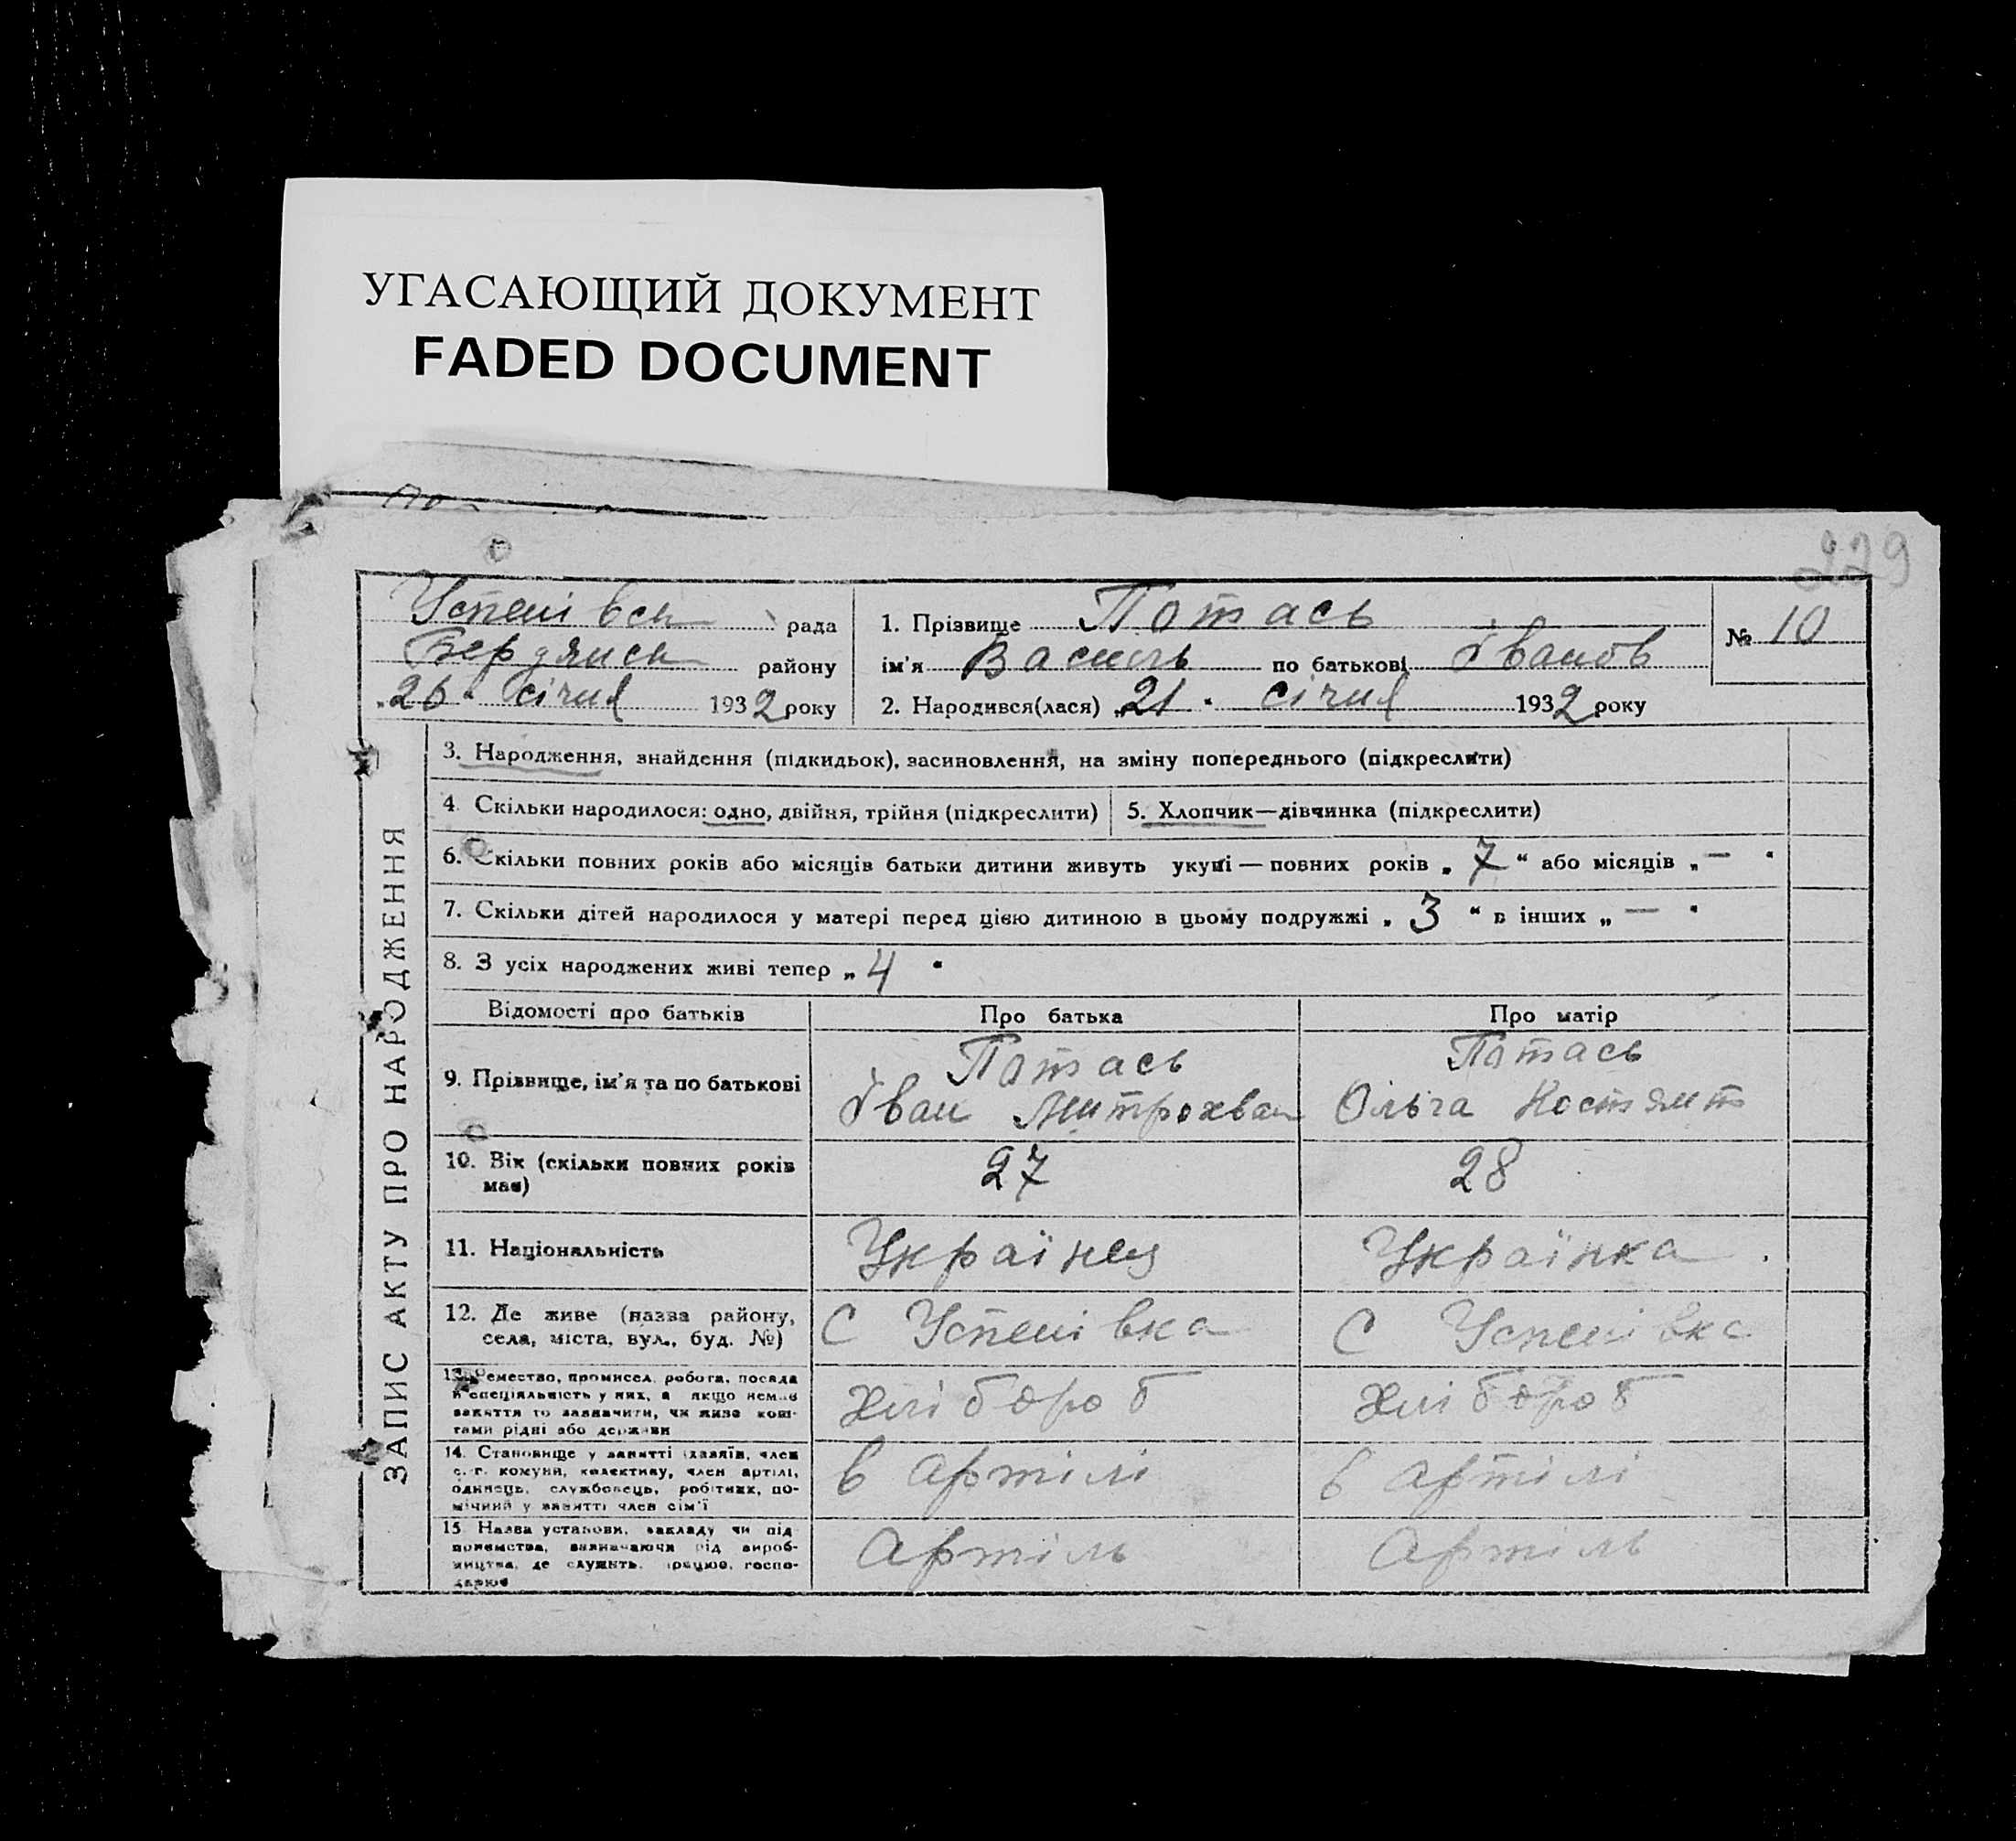 УГАСАЮЩИЙ ДОКУМЕНТ
FADED DOCUMENT
229
Успенівськ рада
Бердянськ району
„26" січня 1932 року
1. Прізвище Потась
ім'я Василь по батькові Іванов
2. Народився(лася) „21" січня 1932 року
№ 10
ЗАПИС АКТУ ПРО НАРОДЖЕННЯ
3. Народження, знайдення (підкидьок), засиновлення, на зміну попереднього (підкреслити)
4. Скільки народилося: одно, двійня, трійня (підкреслити)
5. Хлопчик—дівчинка (підкреслити)
6. Скільки повних років або місяців батьки дитини живуть укупі — повних років „7" або місяців „—"
7. Скільки дітей народилося у матері перед цією дитиною в цьому подружжі „3" в інших „—"
8. З усіх народжених живі тепер „4"
Відомості про батьків
Про батька
Про матір
9. Прізвище, ім'я та по батькові
Потась
Іван Митрохван
Потась
Ольга Костянт
10. Вік (скільки повних років
має)
27
28
11. Національність
Українец
Українка
12. Де живе (назва району,
села, міста, вул., буд. №)
С Успенівка
С Успенівка
13. Ремество, промисел, робота, посада
й спеціяльність у них, а якщо немає
заняття то зазначити, чи живе кош-
тами рідні або держави
хлібороб
хлібороб
14. Становище у занятті (хазяїн, член
с.-г. комуни, колективу, член артілі,
одинець, службовець, робітник, по-
мічний у занятті член сім'ї
в артілі
в артілі
15. Назва установи, закладу чи під-
приємства, зазначаючи рід вироб-
ництва, де служить, працює, госпо-
дарює
Артіль
Артіль